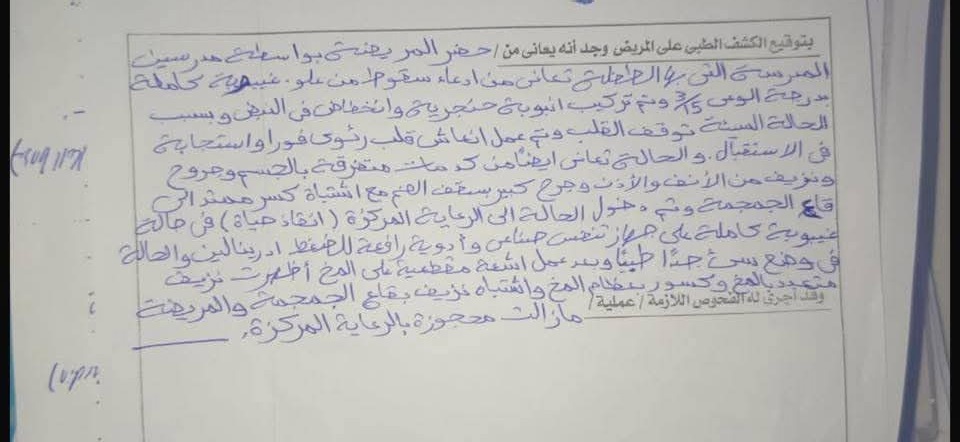 بتوقيع الكشف الطبى على المريض وجد أنه يعانى من / حضر المريضة بواسطة مدرسين
المدرسة التى بها الطفلة تعانى من ادعاء سقوط من علو. غيبوبة كاملة
بدرجة الوعى ٣/١٥ وتم تركيب انبوبة حنجرية وانخفاض فى النبض وبسبب
الحالة السيئة توقف القلب وتم عمل انعاش قلب رئوى فورا واستجابة
فى الاستقبال. والحالة تعانى ايضا من كدمات متفرقة بالجسم وجروح
ونزيف من الأنف والأذن وجرح كبير بسقف الفم مع اشتباة كسر ممتد الى
قاع الجمجمة وتم دخول الحالة الى الرعاية المركزة (انقاذ حياة) فى حالة
غيبوبة كاملة على جهاز تنفس صناعى وأدوية رافعة للضغط ادرينالين والحالة
فى وضع سئ جدًا طبيًا وبعد عمل اشعة مقطعية على المخ أظهرت نزيف
متعدد بالمخ وكسور بعظام المخ واشتباه نزيف بقاع الجمجمة والمريضة
وقد أجرى له الفحوص اللازمة / عملية / مازالت محجوزة بالرعاية المركزة.